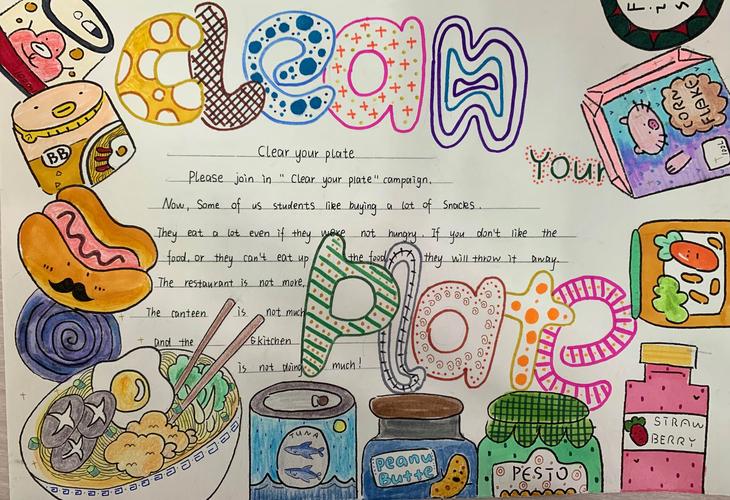 CLean
Your
Plate
Clear your plate
Please join in "Clear your plate" campaign.
Now, Some of us students like buying a lot of Snacks.
They eat a lot even if they were not hungry. If you don't like the
food, or they can't eat up the food, they will throw it away.
The restaurant is not more,
The canteen is not much
and the kitchen
is not doing much!
BB
CORN
FLAK
TUNA
Peanu
Butte
PESTO
STRAW
BERRY